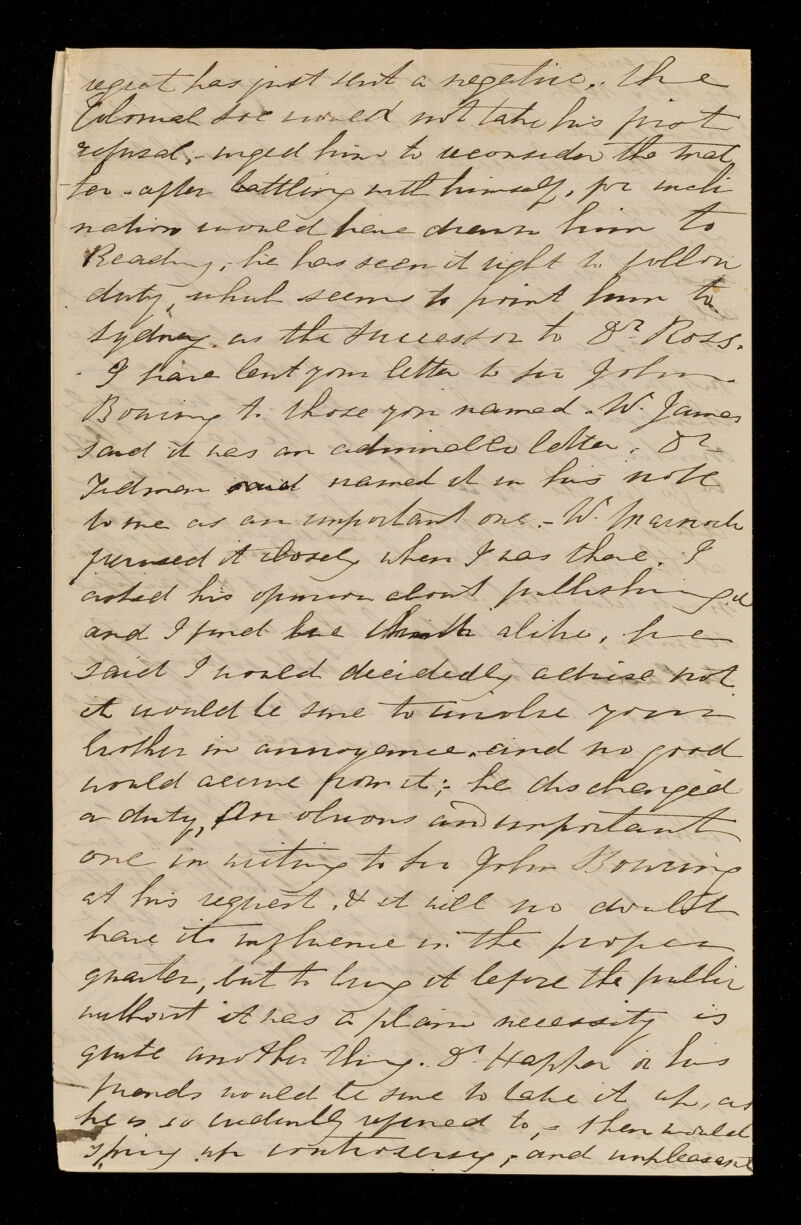 regret has just sent a negative. The
Colonial Soc would not take his first
refusal, - urged him to reconsider the mat
ter - after battling with himself, for incli
nation would have drawn him to
Reading, he has seen it right to follow
duty, which seems to point him to
Sydney as the successor to Dr Ross.
I have lent your letter to Sir John
Bowring to those you named. W. James
said it was an admirable letter. Dr
Tidman said named it in his note
to me as an important one. - W.
perused it closely when I was there. I
asked his opinion about publishing it
and I find we think alike, he
said I would decidedly advise not
it would be sure to involve your
brother in annoyance, and no good
would accrue from it; he discharged
a duty, an obvious and important
one in writing to Sir John Bowring
at his request, & it will no doubt
have its influence in the proper
quarter, but to bring it before the public
without it was a plain necessity is
quite another thing. Dr Happer or his
friends would be sure to take it up, as
he is so evidently referred to, - then would
spring up controversy, - and unpleasant